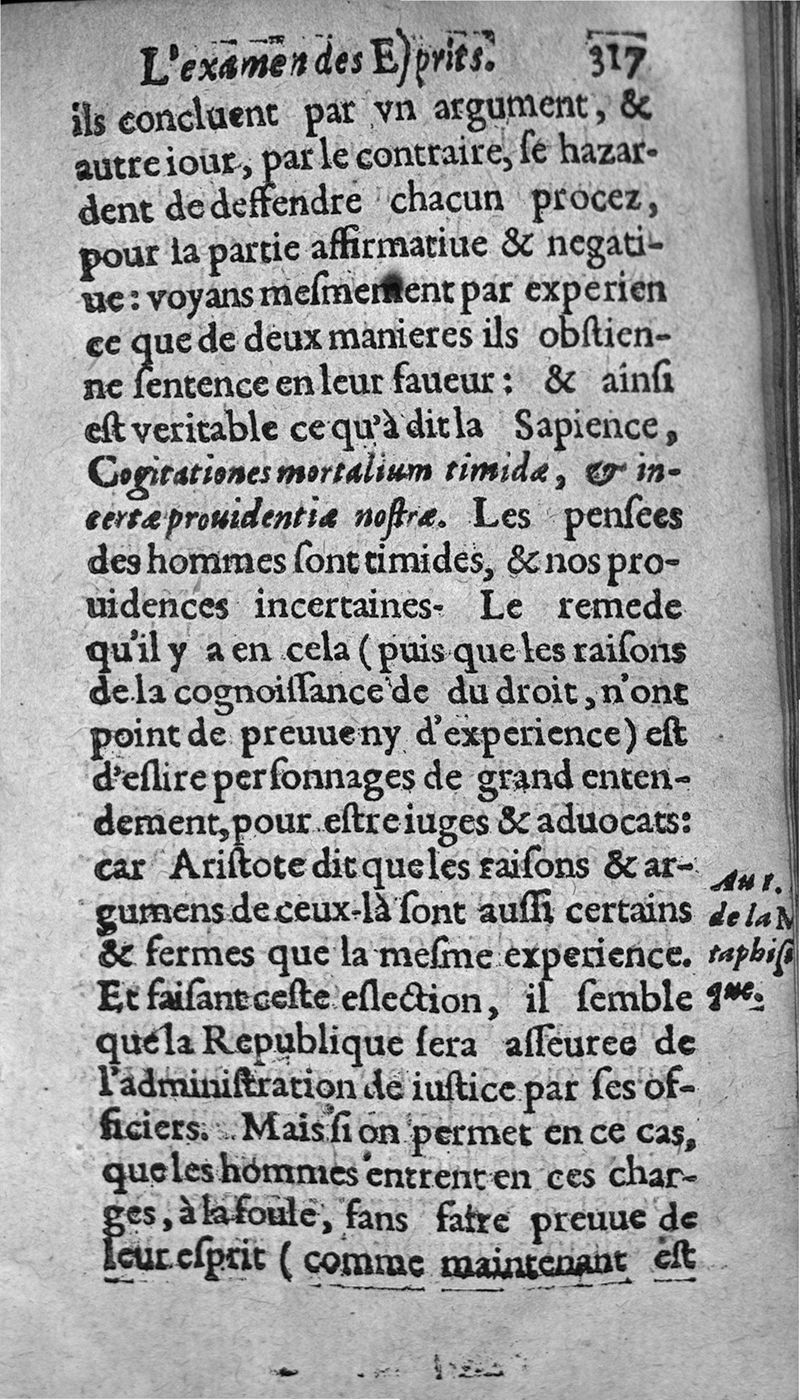 L'examen des Eſprits. 317
ils concluent par vn argument, &
autre iour, par le contraire, ſe hazar-
dent de deffendre chacun procez,
pour la partie affirmatiue & negati-
ue: voyans meſmement par experien
ce que de deux manieres ils obſtien-
ne ſentence en leur faueur: & ainſi
eſt veritable ce qu'à dit la Sapience,
Cogitationes mortalium timidæ, & in-
certæ prouidentiæ noſtræ. Les penſees
des hommes ſont timides, & nos pro-
uidences incertaines. Le remede
qu'il y a en cela (puis que les raiſons
de la cognoiſſance de du droit, n'ont
point de preuue ny d'experience) eſt
d'eſlire perſonnages de grand enten-
dement, pour eſtre iuges & aduocats:
car Ariſtote dit que les raiſons & ar-
gumens de ceux-là ſont auſſi certains
& fermes que la meſme experience.
Et faiſant ceſte eſlection, il ſemble
que la Republique ſera aſſeuree de
l'adminiſtration de iuſtice par ſes of-
ficiers. Mais ſi on permet en ce cas,
que les hommes entrent en ces char-
ges, à la foule, ſans faire preuue de
leur eſprit (comme maintenant eſt
Au 1.
de la M
taphiſi
que.